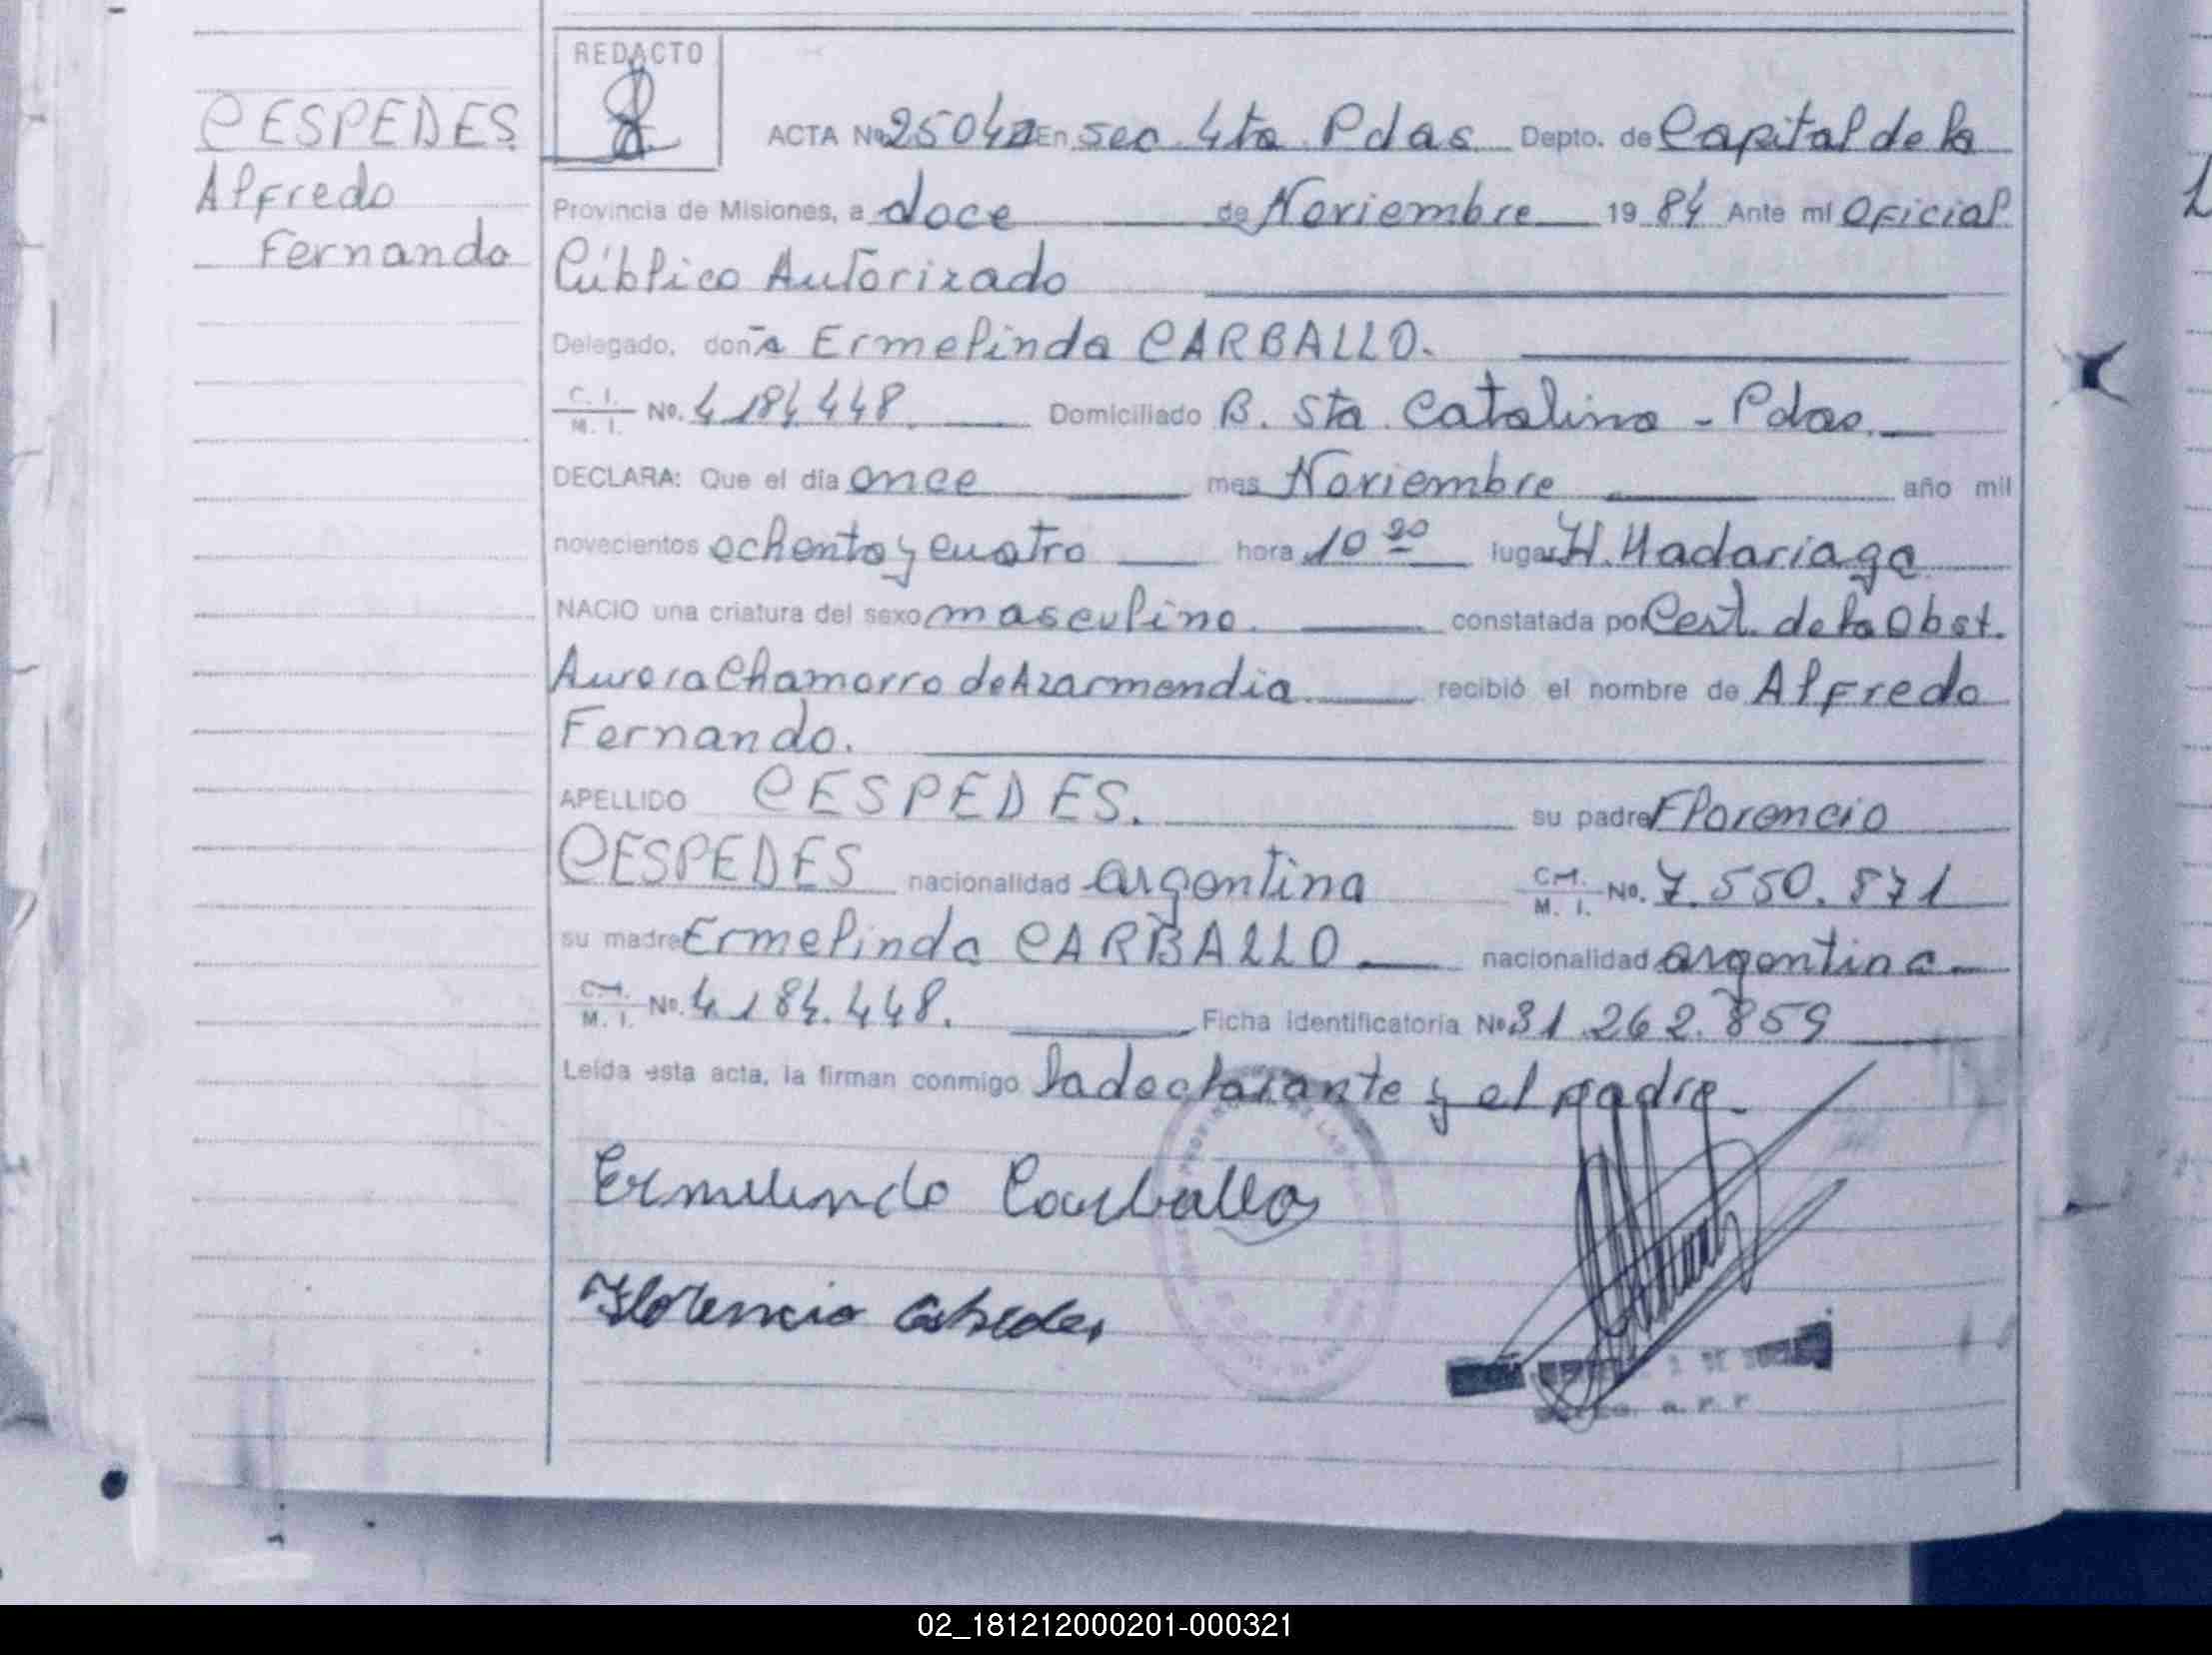 CESPEDES
Alfredo
Fernando
REDACTO
ACTA Nº 2504 En sec. 4ta. Pdas. Depto. de Capital de la
Provincia de Misiones, a doce de Noviembre 19 84 Ante mí Oficial
Público Autorizado
Delegado, doña Ermelinda CARBALLO.
C. I. M. I. Nº. 4.184.448. Domiciliado B. Sta. Catalina - Pdas.
DECLARA: Que el día once mes Noviembre año mil
novecientos ochenta y cuatro hora 10 lugar H. Madariaga
NACIO una criatura del sexo masculino. constatada por Cert. de la Obst.
Aurora Chamorro de Azarmendia recibió el nombre de Alfredo
Fernando.
APELLIDO CESPEDES. su padre Florencio
CESPEDES nacionalidad argentina C.I. M. I. Nº. 7.550.871
su madre Ermelinda CARBALLO nacionalidad argentina
C.I. M. I. Nº. 4.184.448. Ficha identificatoria Nº 31.262.859
Leída esta acta, la firman conmigo la declarante y el padre.
Ermelinda Carballo
Florencio Cespedes
02_181212000201-000321